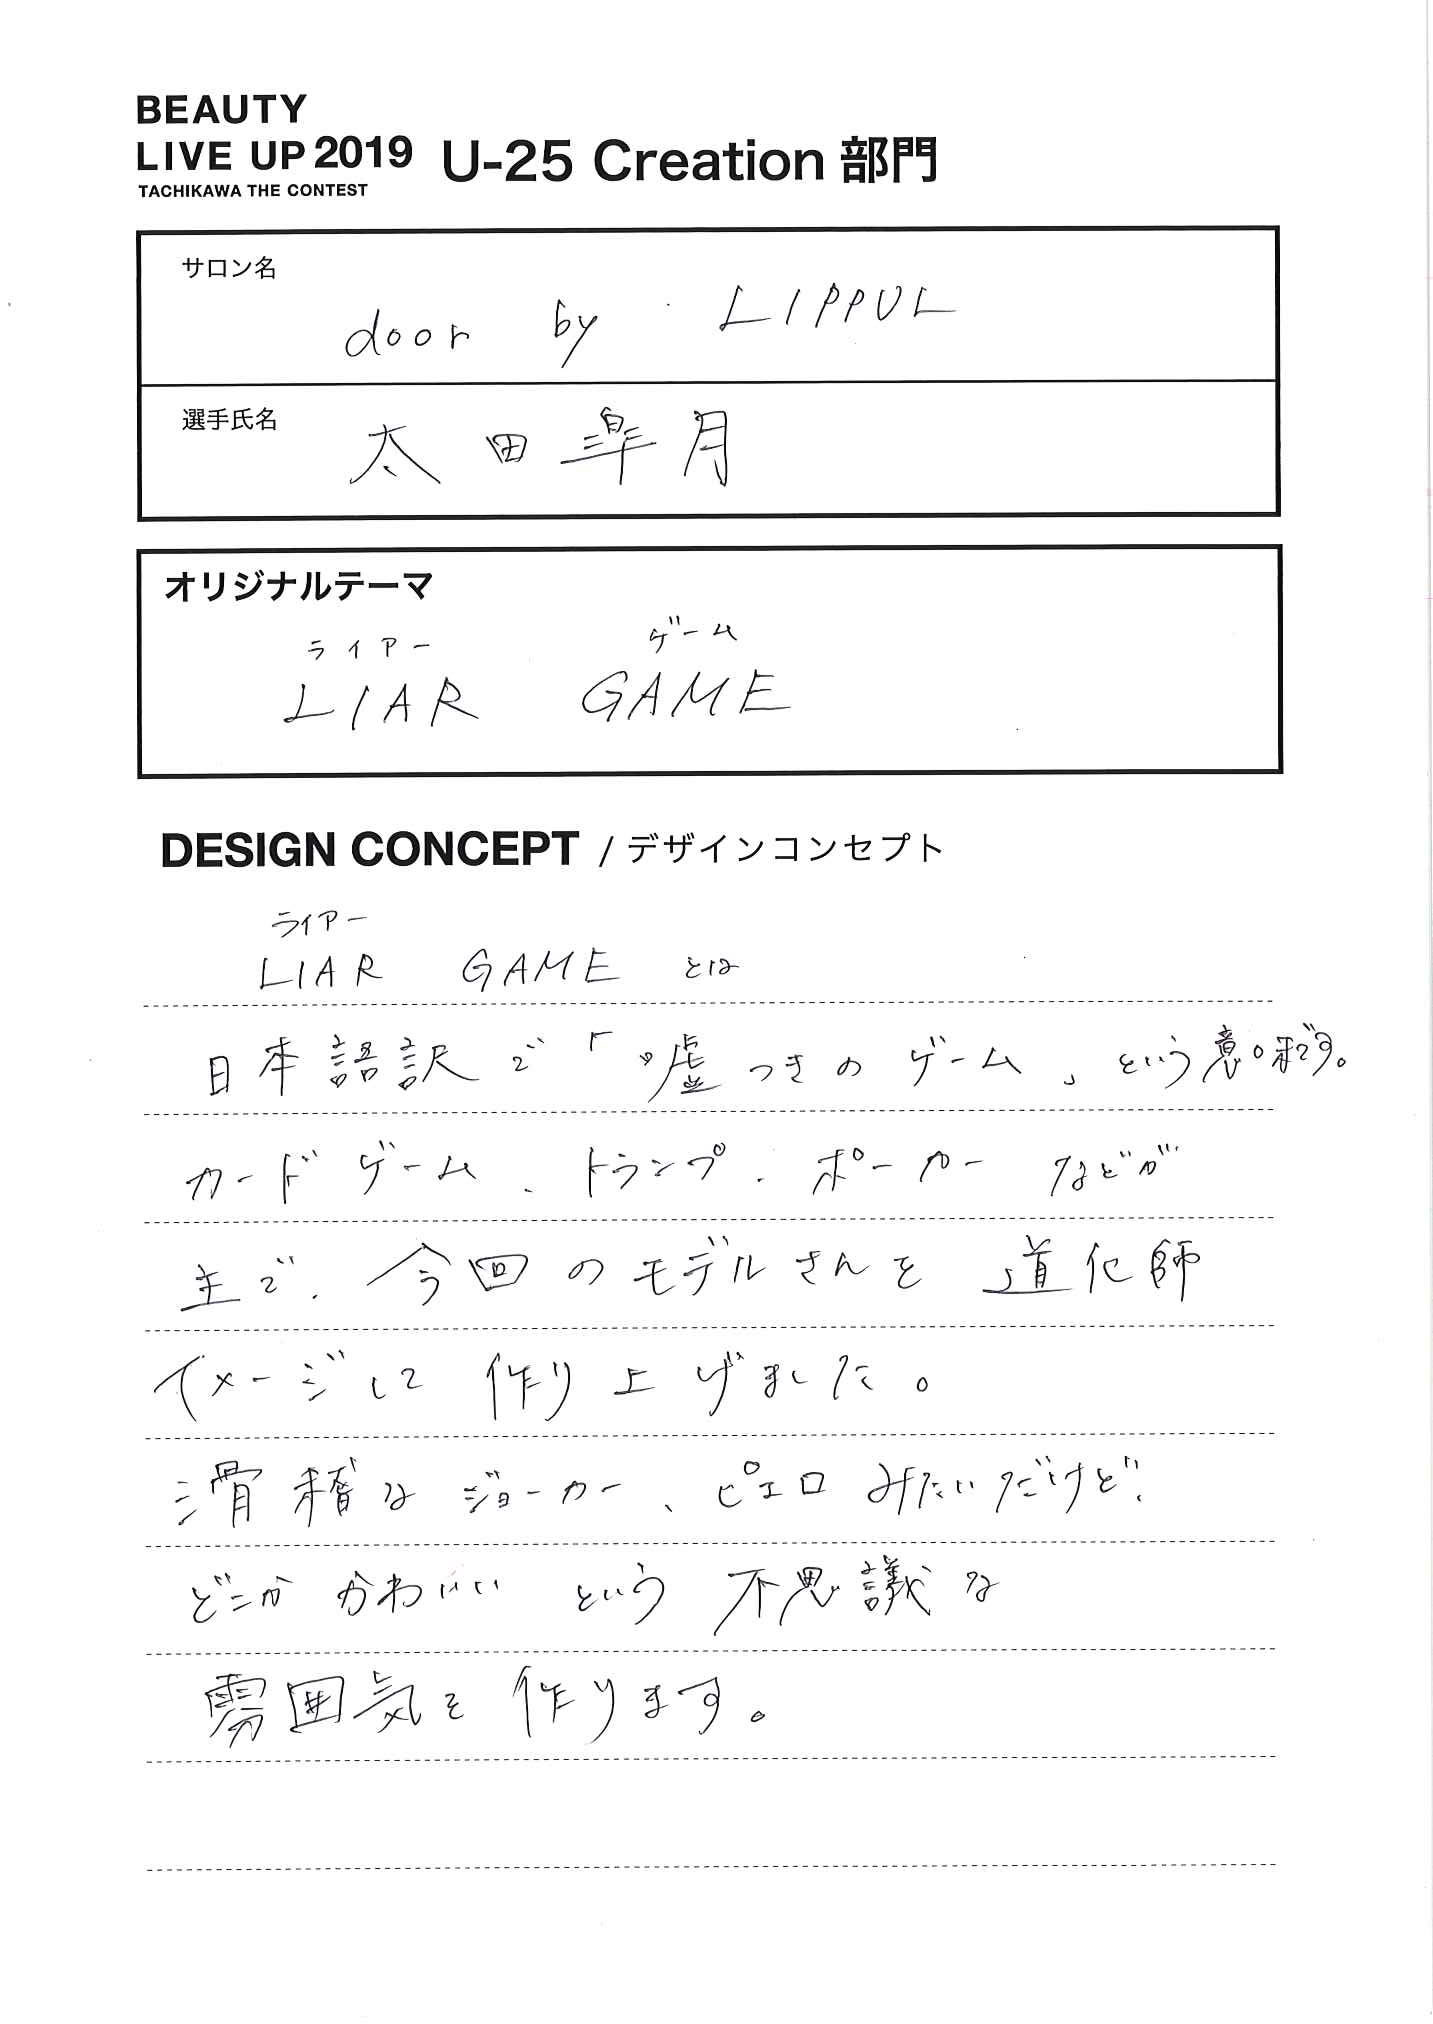 BEAUTY
LIVE UP 2019 U-25 Creation 部門
TACHIKAWA THE CONTEST
サロン名
door by LIPPUL
選手氏名
太田皐月
オリジナルテーマ
ライアー ゲーム
LIAR GAME
DESIGN CONCEPT / デザインコンセプト
ライアー
LIAR GAME とは
日本語訳で「嘘つきのゲーム」という意味です。
カードゲーム、トランプ、ポーカーなどが
主で、今回のモデルさんを道化師
イメージして作り上げました。
滑稽なジョーカー、ピエロみたいだけど、
どこかかわいいという不思議な
雰囲気を作ります。